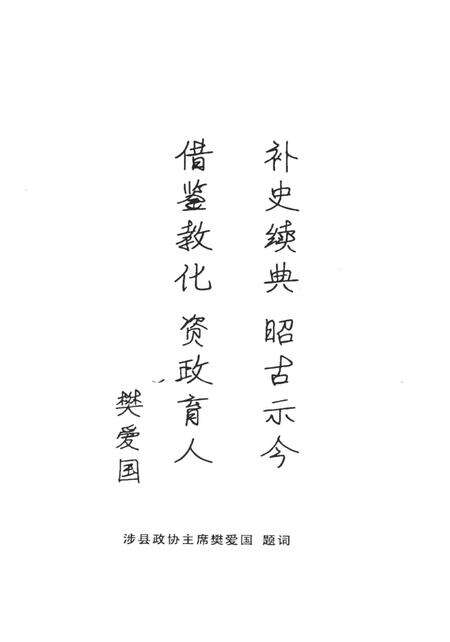 补史续典 昭古示今
借鉴教化 资政育人
樊爱国
涉县政协主席樊爱国 题词